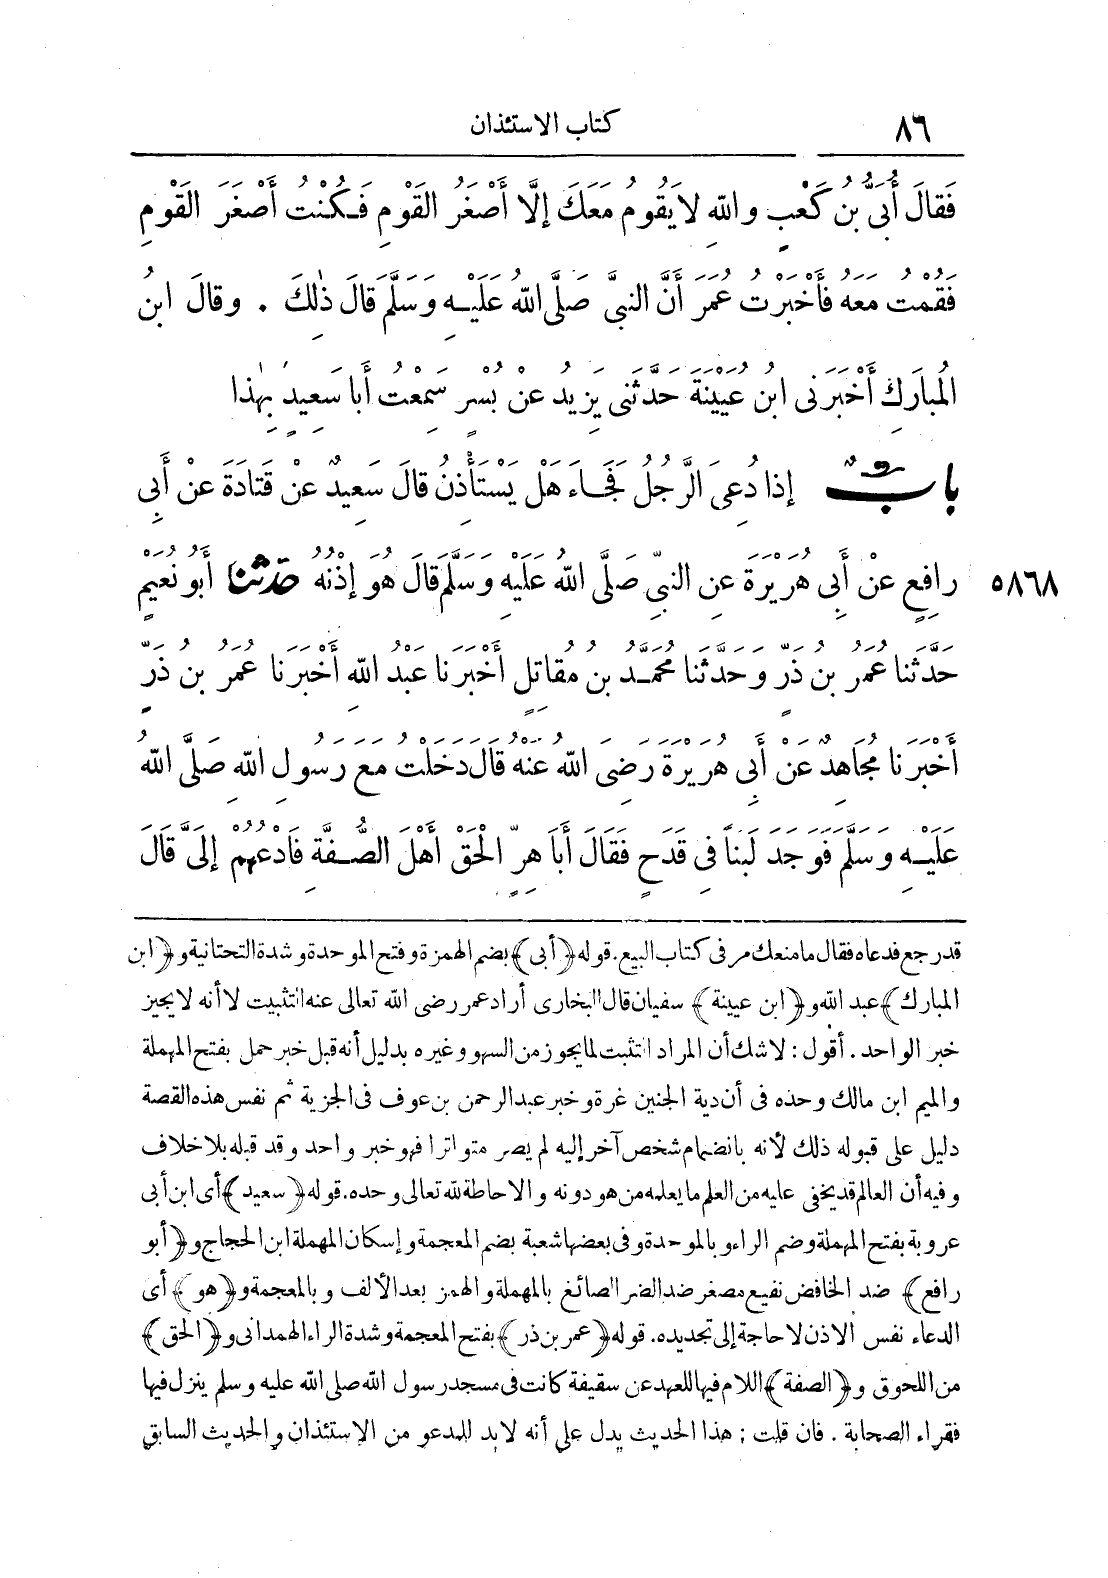 ٨٦ كتاب الاستئذان
فَقَالَ أُبَىُّ بْنُ كَعْبٍ وَاللهِ لَا يَقُومُ مَعَكَ إِلَّا أَصْغَرُ الْقَوْمِ فَكُنْتُ أَصْغَرَ الْقَوْمِ
فَقُمْتُ مَعَهُ فَأَخْبَرْتُ عُمَرَ أَنَّ النَّبِىَّ صَلَّى اللهُ عَلَيْهِ وَسَلَّمَ قَالَ ذٰلِكَ . وَقَالَ ابْنُ
الْمُبَارَكِ أَخْبَرَنِى ابْنُ عُيَيْنَةَ حَدَّثَنِى يَزِيدُ عَنْ بُسْرٍ سَمِعْتُ أَبَا سَعِيدٍ بِهٰذَا
بابٌ إِذَا دُعِىَ الرَّجُلُ فَجَاءَ هَلْ يَسْتَأْذِنُ قَالَ سَعِيدٌ عَنْ قَتَادَةَ عَنْ أَبِى
٥٨٦٨ رَافِعٍ عَنْ أَبِى هُرَيْرَةَ عَنِ النَّبِىِّ صَلَّى اللهُ عَلَيْهِ وَسَلَّمَ قَالَ هُوَ إِذْنُهُ حدثنا أَبُو نُعَيْمٍ
حَدَّثَنَا عُمَرُ بْنُ ذَرٍّ وَحَدَّثَنَا مُحَمَّدُ بْنُ مُقَاتِلٍ أَخْبَرَنَا عَبْدُ اللهِ أَخْبَرَنَا عُمَرُ بْنُ ذَرٍّ
أَخْبَرَنَا مُجَاهِدٌ عَنْ أَبِى هُرَيْرَةَ رَضِىَ اللهُ عَنْهُ قَالَ دَخَلْتُ مَعَ رَسُولِ اللهِ صَلَّى اللهُ
عَلَيْهِ وَسَلَّمَ فَوَجَدَ لَبَنًا فِى قَدَحٍ فَقَالَ أَبَا هِرٍّ الْحَقْ أَهْلَ الصُّفَّةِ فَادْعُهُمْ إِلَىَّ قَالَ
قد رجع فدعاه فقال ما منعك مر فى كتاب البيع. قوله ﴿أبى﴾ بضم الهمزة وفتح الموحدة وشدة التحتانية و ﴿ابن
المبارك﴾ عبد الله و ﴿ابن عيينة﴾ سفيان قال البخارى أراد عمر رضى الله تعالى عنه التثبت لا أنه لا يجيز
خبر الواحد. أقول: لاشك أن المراد التثبت لما يجوز من السهو وغيره بدليل أنه قبل خبر حمل بفتح المهملة
والميم ابن مالك وحده فى أن دية الجنين غرة وخبر عبد الرحمن بن عوف فى الجزية ثم نفس هذه القصة
دليل على قبوله ذلك لأنه بانضمام شخص آخر إليه لم يصر متواترا فهو خبر واحد وقد قبله بلا خلاف
وفيه أن العالم قد يخفى عليه من العلم ما يعلمه من هو دونه والاحاطة لله تعالى وحده. قوله ﴿سعيد﴾ أى ابن أبى
عروبة بفتح المهملة وضم الراء وبالموحدة وفى بعضها شعبة بضم المعجمة وإسكان المهملة ابن الحجاج و ﴿أبو
رافع﴾ ضد الخافض نفيع مصغر ضد الضر الصائغ بالمهملة والهمز بعد الألف وبالمعجمة و ﴿هو﴾ أى
الدعاء نفس الاذن لا حاجة إلى تجديده. قوله ﴿عمر بن ذر﴾ بفتح المعجمة وشدة الراء الهمدانى و ﴿الحق﴾
من اللحوق و ﴿الصفة﴾ اللام فيها للعهد عن سقيفة كانت فى مسجد رسول الله صلى الله عليه وسلم ينزل فيها
فقراء الصحابة. فان قلت: هذا الحديث يدل على أنه لابد للمدعو من الاستئذان والحديث السابق